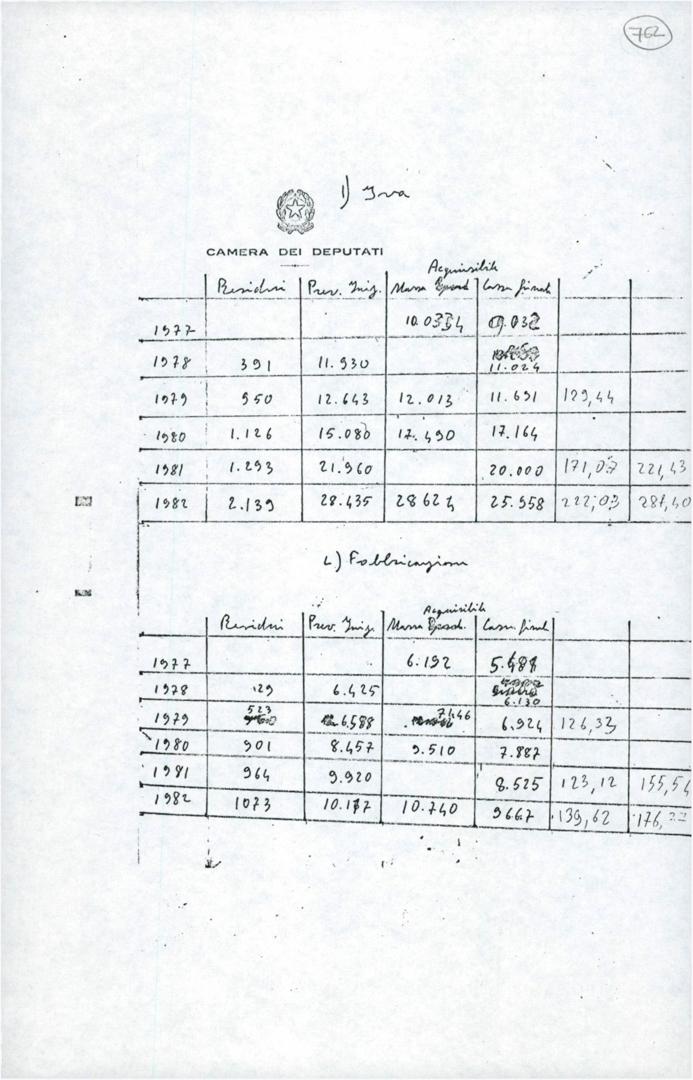 762
1) Iva
CAMERA DEI DEPUTATI
Acquisibili
Residui Prev. Iniz. Massa Spend Cassa finale
1977
1978 391 11.930 11.024
1979 950 12.643 12.013 11.691 129,44
1980 1.126 15.080 17.490 17.164
1981 1.293 21.960 20.000 171,07 221,43
1982 2.139 28.435 28624 25.958 222,03 287,40
2) Fabbricazione
Acquisibili
Residui Prev. Iniz. Massa Spend. Cassa finale
1977 6.192
1978 129 6.425 6.130
1979 523 6.588 7.146 6.924 126,33
1980 901 8.457 9.510 7.887
1981 964 9.920 8.525 123,12 155,54
1982 1073 10.177 10.740 9667 139,62 176,